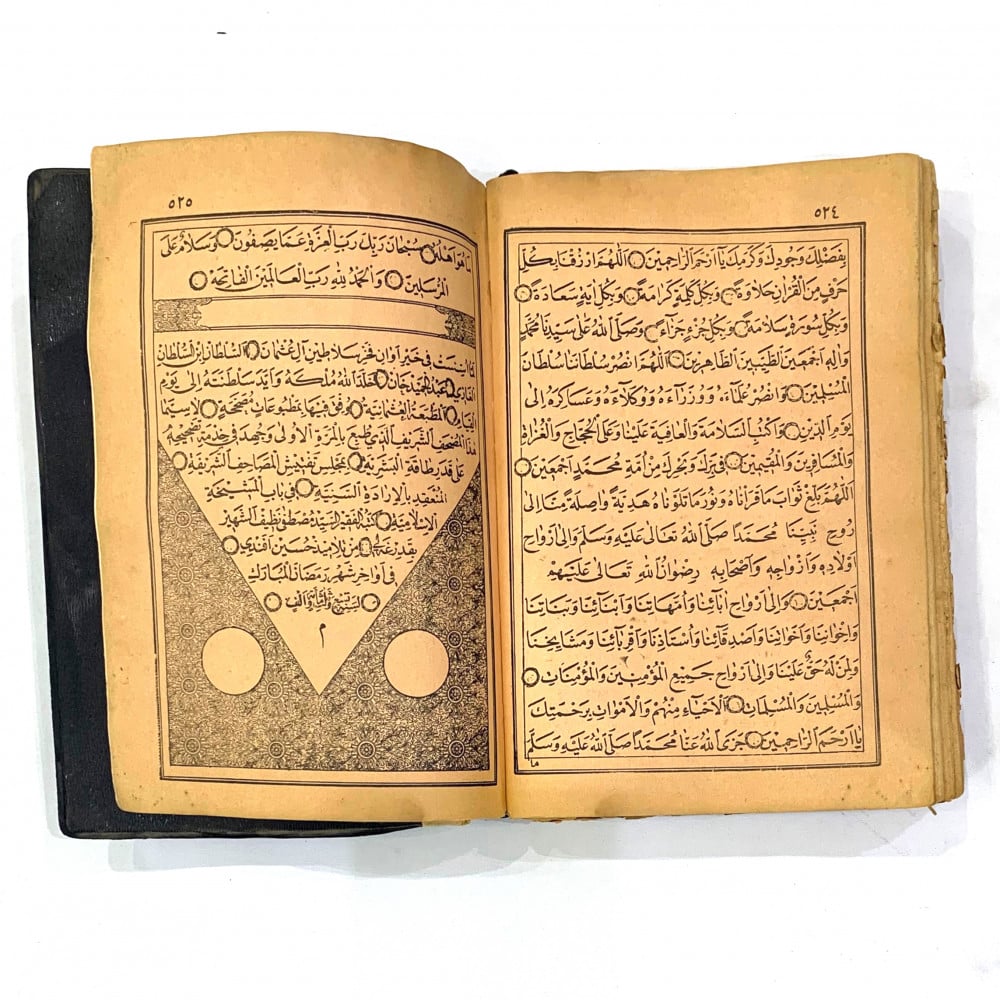 ٥٢٤
بِفَضْلِكَ وَجُودِكَ وَكَرَمِكَ يَا اَرْحَمَ الرَّاحِمِينَ اَللّٰهُمَّ ارْزُقْنَا بِكُلِّ
حَرْفٍ مِنَ الْقُرْاٰنِ حَلَاوَةً وَبِكُلِّ كَلِمَةٍ كَرَامَةً وَبِكُلِّ اٰيَةٍ سَعَادَةً
وَبِكُلِّ سُورَةٍ سَلَامَةً وَبِكُلِّ جُزْءٍ جَزَاءً وَصَلَّى اللّٰهُ عَلٰى سَيِّدِنَا مُحَمَّدٍ
وَاٰلِهِ اَجْمَعِينَ الطَّيِّبِينَ الطَّاهِرِينَ اَللّٰهُمَّ انْصُرْ سُلْطَانَنَا سُلْطَانَ
الْمُسْلِمِينَ وَانْصُرْ عُلَمَاءَهُ وَوُزَرَاءَهُ وَوُكَلَاءَهُ وَعَسَاكِرَهُ اِلٰى
يَوْمِ الدِّينِ وَاكْتُبِ السَّلَامَةَ وَالْعَافِيَةَ عَلَيْنَا وَعَلَى الْحُجَّاجِ وَالْغُزَاةِ
وَالْمُسَافِرِينَ وَالْمُقِيمِينَ فِى بَرِّكَ وَبَحْرِكَ مِنْ اُمَّةِ مُحَمَّدٍ اَجْمَعِينَ
اَللّٰهُمَّ بَلِّغْ ثَوَابَ مَا قَرَأْنَاهُ وَنُورَ مَا تَلَوْنَاهُ هَدِيَّةً وَاصِلَةً مِنَّا اِلٰى
رُوحِ نَبِيِّنَا مُحَمَّدًا صَلَّى اللّٰهُ تَعَالٰى عَلَيْهِ وَسَلَّمَ وَاِلٰى اَرْوَاحِ
اَوْلَادِهِ وَاَزْوَاجِهِ وَاَصْحَابِهِ رِضْوَانُ اللّٰهِ تَعَالٰى عَلَيْهِمْ
اَجْمَعِينَ وَاِلٰى اَرْوَاحِ اٰبَائِنَا وَاُمَّهَاتِنَا وَاَبْنَائِنَا وَبَنَاتِنَا
وَاِخْوَانِنَا وَاَخَوَاتِنَا وَاَصْدِقَائِنَا وَاُسْتَاذِنَا وَاَقْرِبَائِنَا وَمَشَايِخِنَا
وَلِمَنْ لَهُ حَقٌّ عَلَيْنَا وَاِلٰى اَرْوَاحِ جَمِيعِ الْمُؤْمِنِينَ وَالْمُؤْمِنَاتِ
وَالْمُسْلِمِينَ وَالْمُسْلِمَاتِ اَلْاَحْيَاءِ مِنْهُمْ وَالْاَمْوَاتِ بِرَحْمَتِكَ
يَا اَرْحَمَ الرَّاحِمِينَ جَزَى اللّٰهُ عَنَّا مُحَمَّدًا صَلَّى اللّٰهُ عَلَيْهِ وَسَلَّمَ
ما
٥٢٥
مَا هُوَ اَهْلُهُ سُبْحَانَ رَبِّكَ رَبِّ الْعِزَّةِ عَمَّا يَصِفُونَ وَسَلَامٌ عَلَى
الْمُرْسَلِينَ وَالْحَمْدُ لِلّٰهِ رَبِّ الْعَالَمِينَ الْفَاتِحَةَ
لَمَّا اُسِّسَتْ فِى خَيْرِ اَوَانِ فَخْرِ سَلَاطِينِ اٰلِ عُثْمَانَ اَلسُّلْطَانِ ابْنِ السُّلْطَانِ
الْغَازِى عَبْدِ الْحَمِيدِ خَانْ خَلَّدَ اللّٰهُ مُلْكَهُ وَاَيَّدَ سَلْطَنَتَهُ اِلٰى يَوْمِ
الْقِيَامِ اَلْمَطْبَعَةُ الْعُثْمَانِيَّةُ وَفِّقَ فِيهَا بِمَطْبُوعَاتٍ مُصَحَّحَةٍ لَاسِيَّمَا
هٰذَا الْمُصْحَفُ الشَّرِيفُ الَّذِى طُبِعَ بِالْمَرَّةِ الْاُولٰى وَجُهِدَ فِى خِدْمَةِ تَصْحِيحِهِ
عَلٰى قَدْرِ طَاقَةِ الْبَشَرِيَّةِ بِمَجْلِسِ تَفْتِيشِ الْمَصَاحِفِ الشَّرِيفَةِ
الْمُنْعَقِدِ بِالْاِرَادَةِ السَّنِيَّةِ فِى بَابِ الْمَشْيَخَةِ
الْاِسْلَامِيَّةِ كَتَبَهُ الْفَقِيرُ السَّيِّدُ مُصْطَفٰى نَظِيفْ الشَّهِيرُ
بِقَدِرْغَهْ لِى مِنْ تَلَامِيذِ حُسَيْنْ اَفَنْدِى
فِى اَوَاخِرِ شَهْرِ رَمَضَانِ الْمُبَارَكِ
لِسَنَةِ تِسْعٍ وَثَلٰثْمِائَةٍ وَاَلْفٍ
م